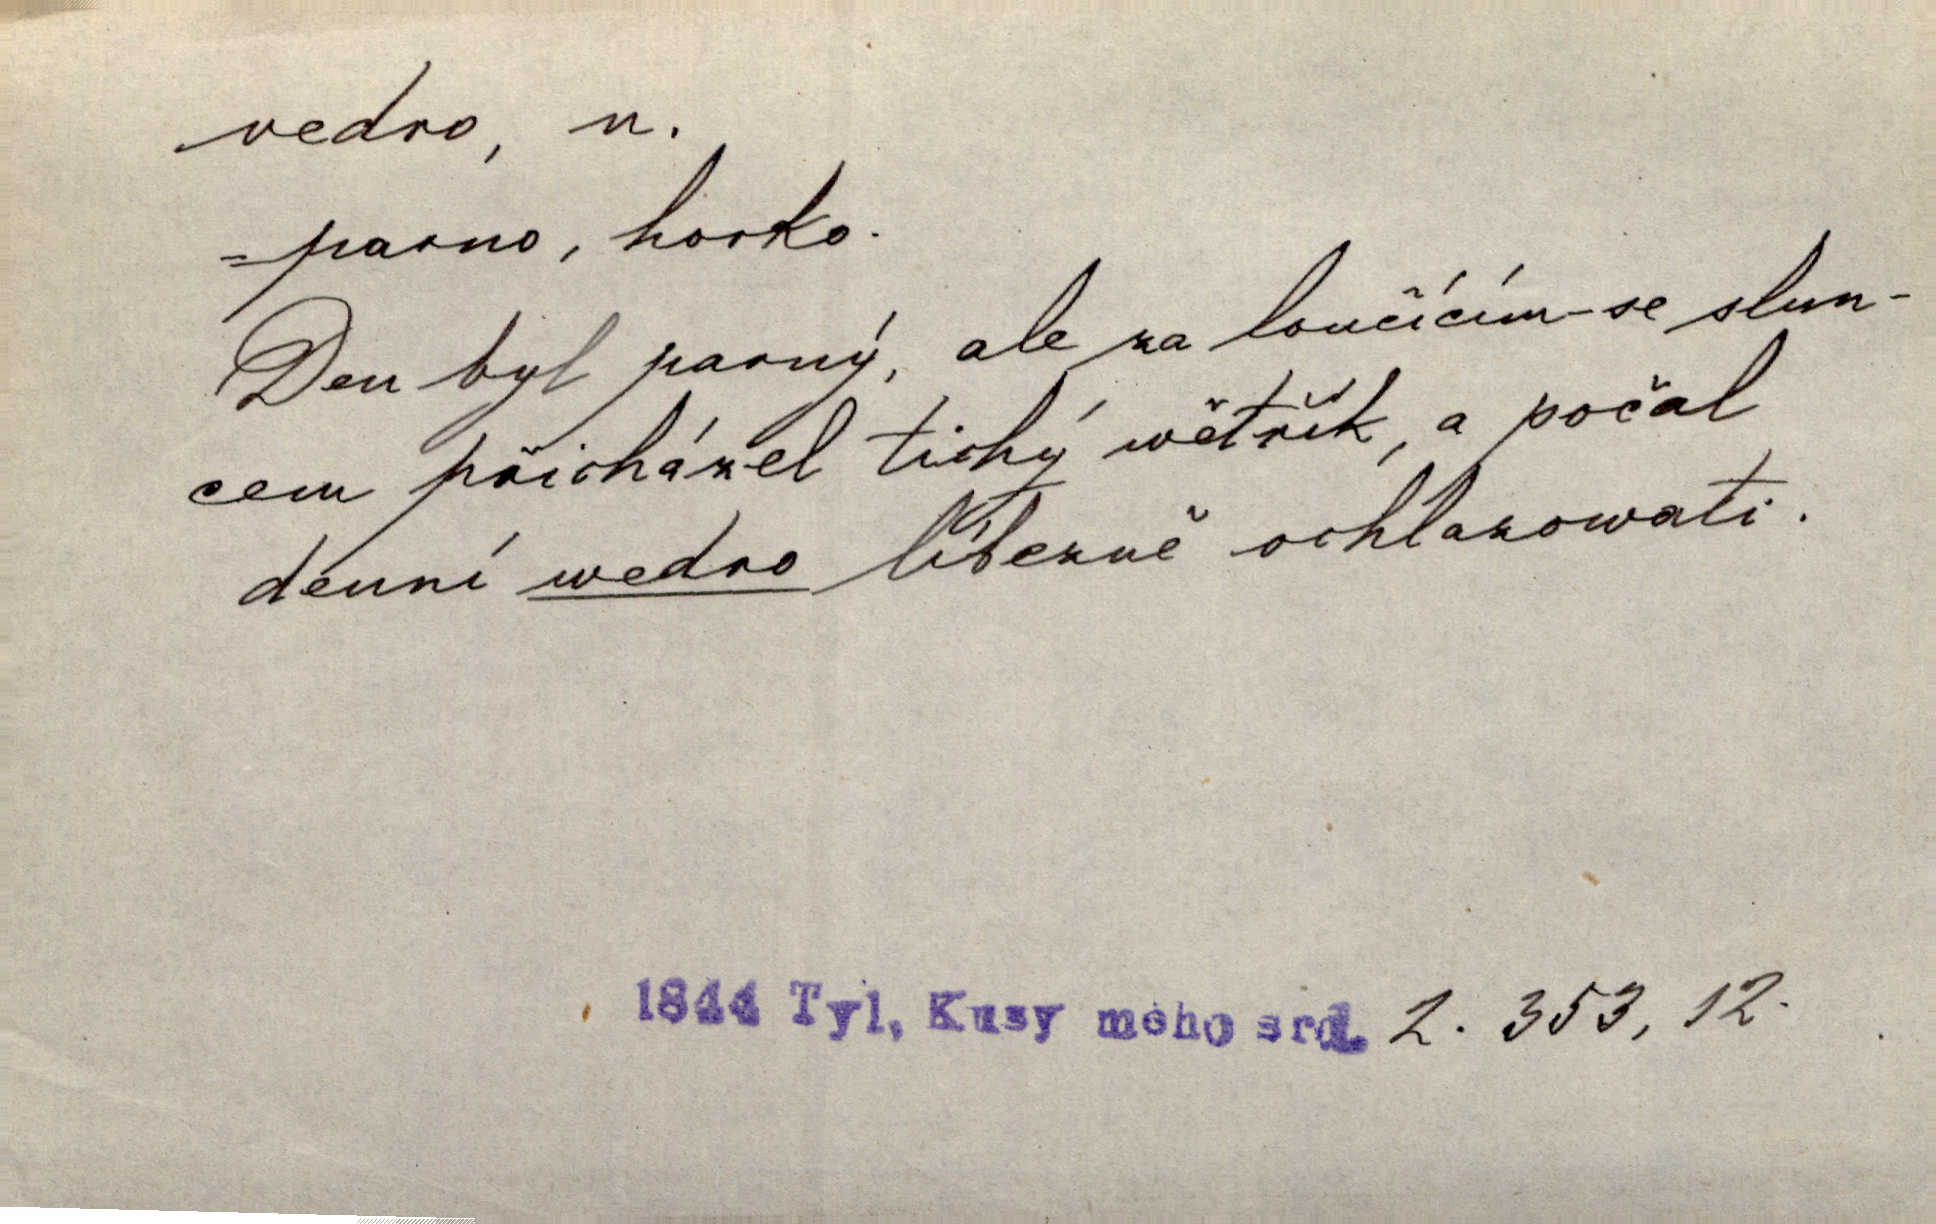 vedro, n.
= parno, horko.
Den byl parný, ale za loučícím-se slun-
cem přicházel tichý wětřík, a počal
denní wedro líbezně ochlazowati.
1844 Tyl, Kusy mého srd. 2. 353, 12.